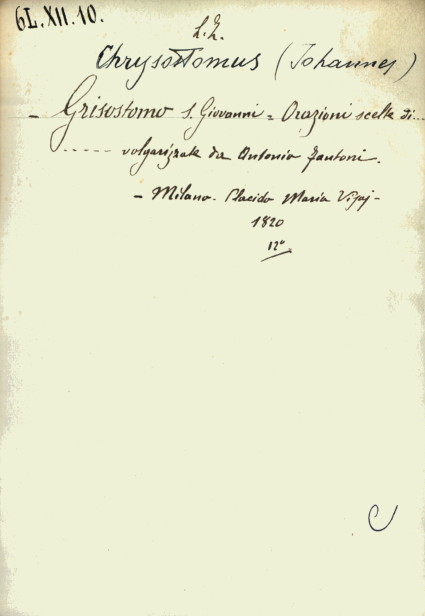 6L.XII.10.
L.Z.
Chrysostomus (Johannes)
- Grisostomo S. Giovanni = Orazioni scelte di...
------ volgarizzate da Antonio Fantoni.
- Milano - Placido Maria Visaj -
1820
12°
C